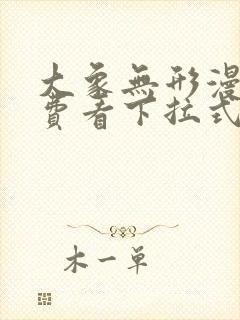 大象無形漫
費者下拉式
木一单